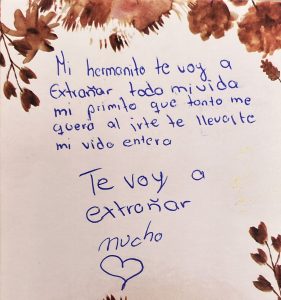 Mi hermanito te voy a
Extrañar todo mi vida
mi primito que tanto me
quera al irte te llevaste
mi vido entera
Te voy a
extrañar
mucho